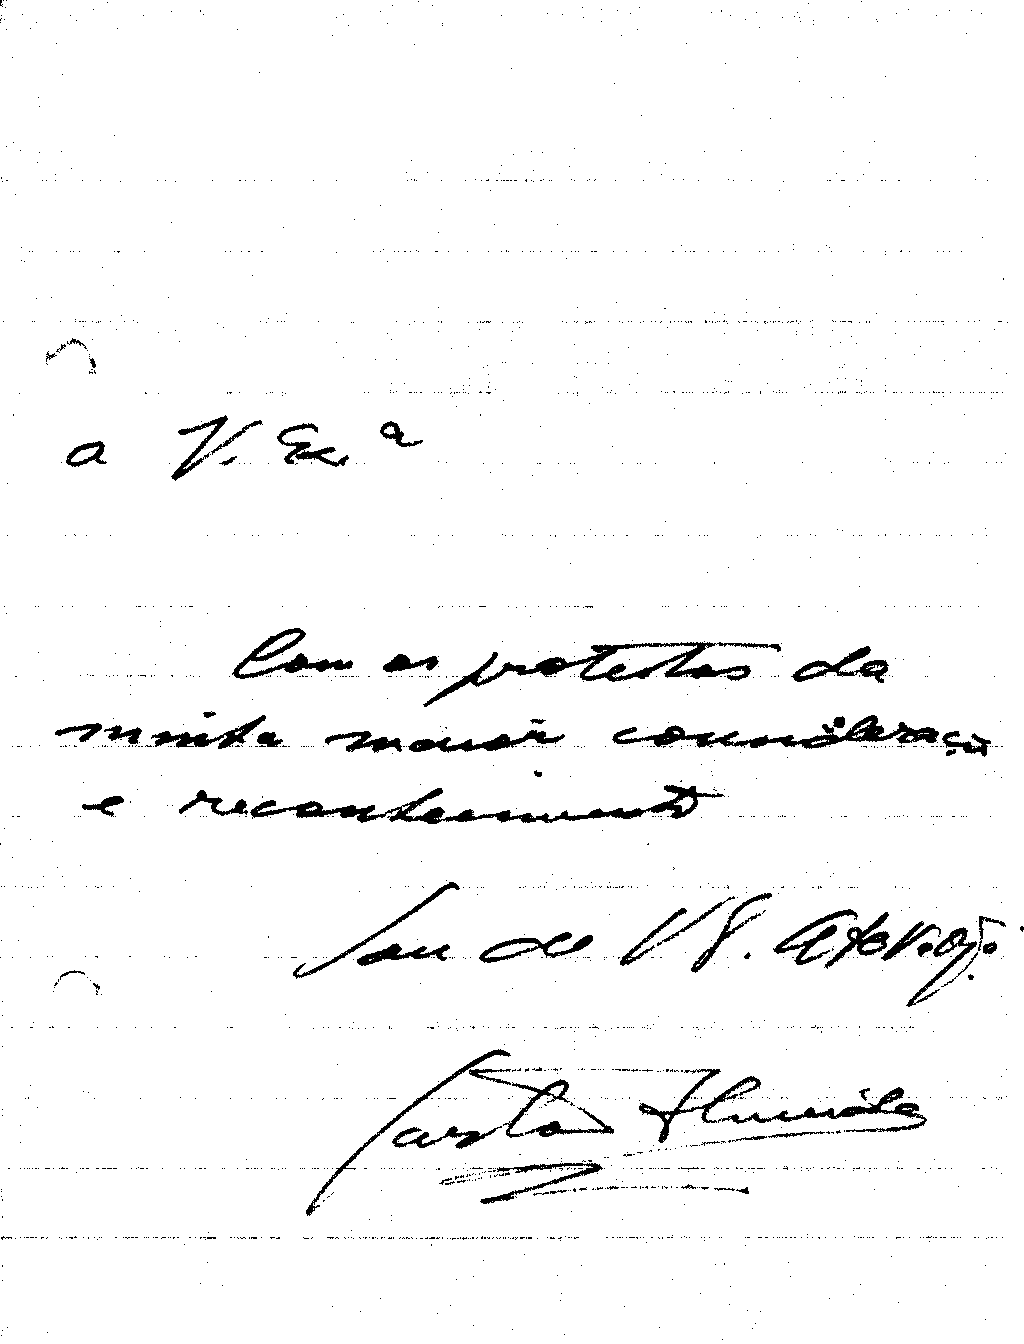 a V. Ex.ª
Com os protestos da
minha maior consideração
e reconhecimento
Sou de V. Ex.ª
Almeida